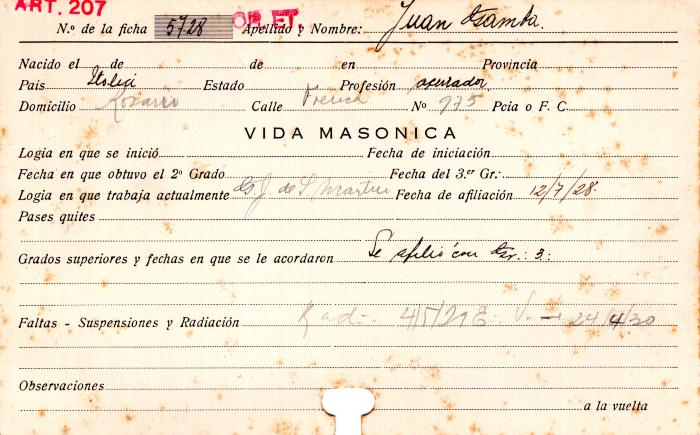 ART. 207 OR. ET.
N.º de la ficha 5728 Apellido y Nombre: Juan Gamba.
Nacido el de de en Provincia
Pais Italia Estado Profesión
Domicilio Rosario Calle Nº 975 Pcia o F. C.
VIDA MASONICA
Logia en que se inició Fecha de iniciación
Fecha en que obtuvo el 2º Grado Fecha del 3.er Gr.:
Logia en que trabaja actualmente G. J. de S. Martin Fecha de afiliación 12/7/28.
Pases quites
Grados superiores y fechas en que se le acordaron Se afilió con Gr.: 3:
Faltas - Suspensiones y Radiación Rad. 4/5/29 24/4/30
Observaciones
a la vuelta